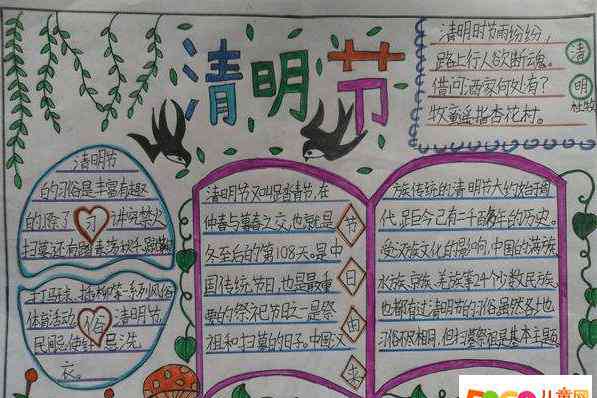 清明节
清明时节雨纷纷,
路上行人欲断魂。
借问酒家何处有?
牧童遥指杏花村。
清
明
杜牧
清明节
的习俗是丰富有趣
的,除了 讲究禁火
扫墓,还有踏青荡秋千,蹴鞠
习
打马球、插柳等系列风俗
体育活动。 清明节,
民间忌使针,忌洗
衣。
俗
清明节又叫踏青节,在
仲春与暮春之交,也就是
冬至后的第108天。是中
国传统节日,也是最重
要的祭祀节日之一,是祭
祖和扫墓的日子。中国汉
节
日
由
来
族传统的清明节大约始于周
代,距今已有二千五百多年的历史。
受汉族文化的影响,中国的满族、
水族、京族、羌族等24个少数民族,
也都有过清明节的习俗。虽然各地
习俗不相同,但扫墓祭祖是基本主题
儿童网